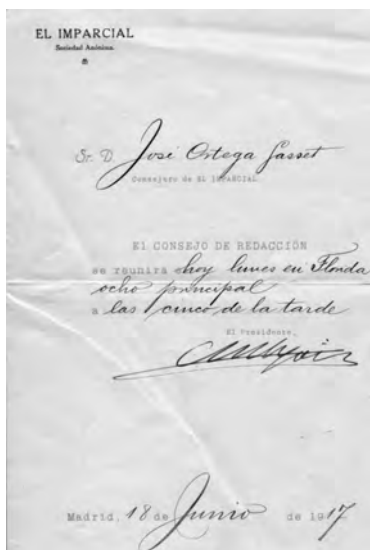 EL IMPARCIAL
Sociedad Anónima.
Sr. D. José Ortega Gasset
Consejero de EL IMPARCIAL
El CONSEJO DE REDACCIÓN
se reunirá hoy lunes en Florida
ocho principal
a las cinco de la tarde
El Presidente,
Madrid, 18 de Junio de 1917